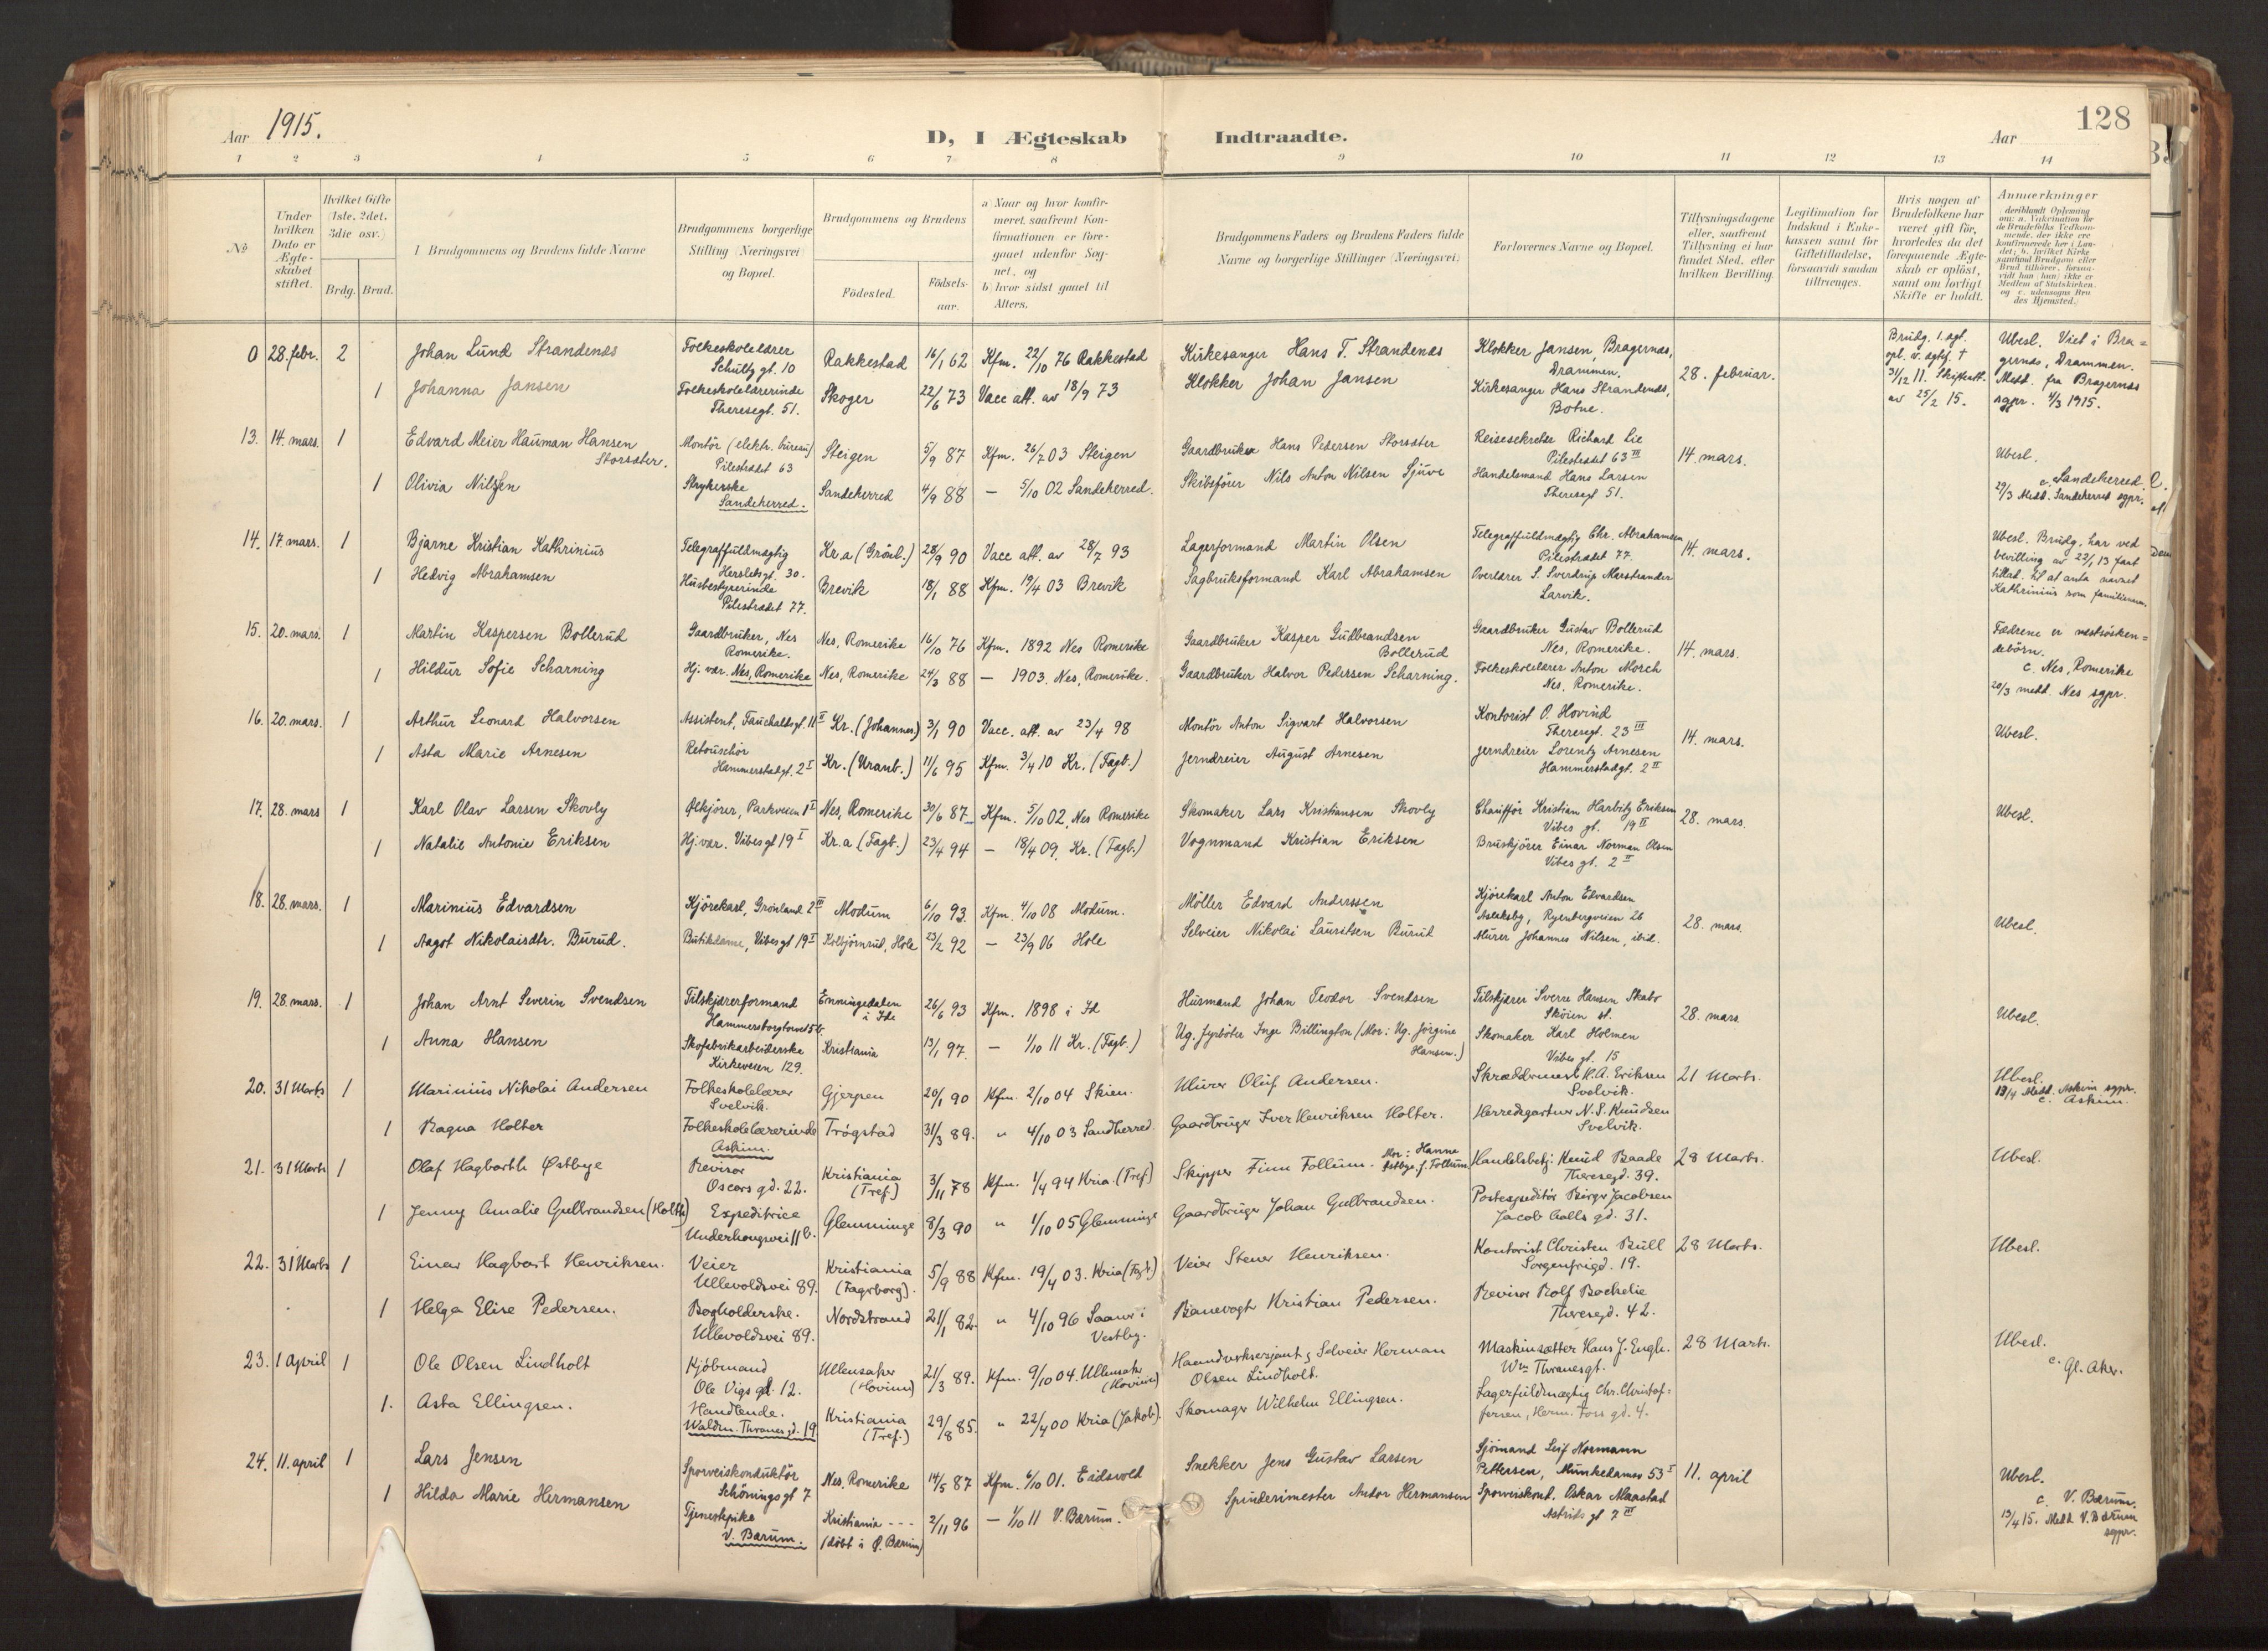 128
Aar 1915.
D, I Ægteskab Indtraadte.
Aar
1 2 3 4 5 6 7 8 9 10 11 12 13 14
No
Under hvilken Dato er Ægteskabet stiftet.
Hvilket Gifte (1ste, 2det, 3die osv.)
Brdg. Brud.
I Brudgommens og Brudens fulde Navne
Brudgommens borgerlige Stilling (Næringsvei) og Bopæl.
Brudgommens og Brudens
Fødested.
Fødselsaar.
a) Naar og hvor konfirmeret, saafremt Konfirmationen er foregaaet udenfor Sognet, og
b) hvor sidst gaaet til Alters.
Brudgommens Faders og Brudens Faders fulde Navne og borgerlige Stillinger (Næringsvei)
Forlovernes Navne og Bopæl.
Tillysningsdagene eller, saafremt Tillysning ei har fundet Sted, efter hvilken Bevilling.
Legitimation for Indskud i Enkekassen samt for Giftetilladelse, forsaavidt saadan tiltrænges.
Hvis nogen af Brudefolkene har været gift før, hvorledes da det foregaaende Ægteskab er opløst, samt om lovligt Skifte er holdt.
Anmærkninger (deriblandt Oplysning om: a. Vakcination for de Brudefolks Vedkommende, der ikke ere konfirmerede her i Landet; b. hvilket Kirkesamfund Brudgom eller Brud tilhører, forsaavidt han (hun) ikke er Medlem af Statskirken, og c. udensogns Brudes Hjemsted.)
0 28. febr. 2 Johan Lund Strandenæs Folkeskolelærer Schultz gt. 10 Rakkestad 16/1 62 Kfm. 22/10 76 Rakkestad Kirkesanger Hans T. Strandenæs Klokker Jansen, Bragernæs, Drammen. 28. februar. Brudg. 1. ægt. opl. v. ægtef. † 31/12 11. Skifteatt. av 25/2 15. Ubesl. Viet i Bragernæs, Drammen. Medd. fra Bragernæs sgpr. 4/3 1915.
1 Johanna Jansen Folkeskolelærerinde Theresegt. 51. Skoger 22/6 73 Vacc. att. av 18/9 73 Klokker Johan Jansen Kirkesanger Hans Strandenæs, Botne.
13. 14. mars. 1 Edvard Meier Hauman Hansen Storsæter. Montör (elektr. büreau) Pilestrædet 63 Steigen 5/9 87 Kfm. 26/7 03 Steigen Gaardbruker Hans Pedersen Storsæter Reisesekretær Richard Lie Pilestrædet 63 III 14. mars. Ubesl.
1 Olivia Nilsen Strykerske Sandeherred. Sandeherred 4/9 88 — 5/10 02 Sandeherred. Skibsfører Nils Anton Nilsen Sjuve Handelsmand Hans Larsen Theresegt 51. c. Sandeherred. 29/3 Medd. Sandeherred sgpr.
14. 17. mars. 1 Bjarne Kristian Kathrinius Telegraffuldmægtig Herslebsgt. 30. Kr.a (Grönl.) 28/9 90 Vacc att. av 28/7 93 Lagerformand Martin Olsen Telegraffuldmægtig Chr. Abrahamsen Pilestrædet 77. 14. mars. Ubesl. Brudg. har ved bevilling av 22/1 13 faat tillad. til at anta navnet Kathrinius som familienavn.
1 Hedvig Abrahamsen Husbestyrerinde Pilestrædet 77. Brevik 18/1 88 Kfm. 19/4 03 Brevik Sagbruksformand Karl Abrahamsen Overlærer S. Sverdrup Marstrander Larvik.
15. 20. mars. 1 Martin Kaspersen Bollerud Gaardbruker, Nes Romerike. Nes, Romerike 16/10 76 Kfm. 1892 Nes Romerike Gaardbruker Kasper Gulbrandsen Bollerud Gaardbruker Gustav Bollerud Nes, Romerike. 14. mars. Fædrene er næstsöskendebörn.
1 Hildur Sofie Scharning Hj. vær. Nes, Romerike Nes, Romerike 24/3 88 — 1903. Nes, Romerike. Gaardbruker Halvor Pedersen Scharning. Folkeskolelærer Anton Morch Nes, Romerike. c. Nes, Romerike 20/3 medd. Nes sgpr.
16. 20. mars. 1 Arthur Leonard Halvorsen Assistent, Fauchaldsgt. 11 II Kr. (Johannes) 3/1 90 Vacc. att. av 23/4 98 Montör Anton Sigvart Halvorsen Kontorist O. Hovind Theresegt. 23 III 14. mars. Ubesl.
1 Asta Marie Arnesen Retouschör Hammerstadgt. 2 I Kr. (Uranb.) 11/6 95 Kfm. 3/4 10 Kr. (Fagb.) Jerndreier August Arnesen Jerndreier Lorentz Arnesen Hammerstadgt. 2 II
17. 28. mars 1 Karl Olav Larsen Skovly Ølkjörer, Parkveien 1 I Nes, Romerike 30/6 87 Kfm. 5/10 02, Nes Romerike Skomaker Lars Kristiansen Skovly Chaufför Kristian Harbitz Eriksen Vibes gt. 19 II 28. mars. Ubesl.
1 Natalie Antonie Eriksen Hj. vær. Vibesgt 19 I Kr.a (Fagb.) 23/4 94 — 18/4 09. Kr. (Fagb.) Vognmand Kristian Eriksen Bruskjörer Einar Norman Olsen Vibes gt. 2 II
18. 28. mars. 1 Marinius Edvardsen Kjörekarl, Grönland 2 III Modum 6/10 93. Kfm. 4/10 08 Modum. Möller Edvard Anderssen Kjörekarl Anton Edvardsen Aslaksby, Ryenbergveien 26 28. mars. Ubesl.
1 Aagot Nikolaisdtr. Burud. Butikdame, Vibesgt 19 I Kolbjörnrud, Hole 23/2 92 — 23/9 06 Hole Selveier Nikolai Lauritsen Burud Murer Johannes Nilsen, ibid.
19. 28. mars. 1 Johan Arnt Severin Svendsen Tilskjærerformand Hammersborgtorvet 5 b. Enningedalen i Idd 26/6 93 Kfm. 1898 i Id Husmand Johan Teodor Svendsen Tilskjærer Sverre Hansen Skabo Sköien st. 28. mars Ubesl.
1 Anna Hansen Skofabrikarbeiderske Kirkeveien 129. Kristiania 13/1 97. — 1/10 11 Kr. (Fagb.) Ug. fyrböter Inge Billington (Mor: Ug. Jörgine Hansen.) Skomaker Karl Holmen Vibes gt. 15
20. 31 Marts 1 Marinius Nikolai Andersen Folkeskolelærer Svelvik. Gjerpen 20/1 90 Kfm. 2/10 04 Skien. Murer Oluf Andersen. Skræddermest. K. A. Eriksen Svelvik. 21 Marts. Ubesl. 13/4 Medd. Askim sgpr. c. Askim.
1 Ragna Holter Folkeskolelærerinde Askim. Trögstad 31/3 89. " 4/10 03 Sandherred. Gaardbruger Iver Henriksen Holter. Herredsgartner N. S. Knudsen Svelvik.
21. 31 Marts 1 Olaf Hagbarth Østbye Revisor Oscars gd. 22. Kristiania (Tref.) 3/11 78 Kfm. 1/4 94 Kria. (Tref) Skipper Finn Follum. Mor: Hanne Østbye f. Follum. Handelsbetj. Knud Baade Theresegd. 39. 28 Marts. Ubesl.
1 Jenny Amalie Gulbrandsen (Holth) Expeditrice Underhaugsvei 11 b. Glemminge 8/3 90 " 1/10 05 Glemminge Gaardbruger Johan Gulbrandsen. Postexpeditör Birger Jacobsen Jacob Aalls gd. 31.
22. 31 Marts 1 Einar Hagbart Henriksen. Veier Ullevoldsvei 89. Kristiania (Fagerborg). 5/9 88 Kfm. 19/4 03. Kria (Fagb.) Veier Stener Henriksen. Kontorist Christen Bull Sorgenfrigd. 19. 28 Marts. Ubesl.
1 Helga Elise Pedersen. Bogholderske. Ullevoldsvei 89. Nordstrand 21/1 82. " 4/10 96 Saaner i Vestby. Banevogt Kristian Pedersen. Revisor Rolf Bachelie Theresegd. 42.
23. 1 April 1 Ole Olsen Lindholt Kjöbmand Ole Vigs gd. 12. Ullensaker (Hovind) 21/3 89. Kfm. 9/10 04. Ullensaker (Hovind) Haandverksersjant, Selveier Herman Olsen Lindholt. Maskinsætter Hans J. Engh. Wm Thranesgt. 28 Marts. Ubesl. c. Gl. Aker.
1. Asta Ellingsen. Handlende. Waldm. Thranes gd. 19 Kristiania (Tref.) 29/8 85. " 22/4 00 Kria (Jakob). Skomager Wilhelm Ellingsen. Lagerfuldmægtig Chr. Christoffersen, Herm. Foss gd. 4.
24. 11. april 1 Lars Jensen Sporveiskonduktör Schönings gt 7 Nes, Romerike 14/5 87 Kfm. 6/10 01. Eidsvold Snekker Jens Gustav Larsen Sjömand Leif Normann Pettersen, Munkedamsv 53 I 11. april Ubesl.
1 Hilda Marie Hermansen Tjenestepike V. Bærum. Kristiania --- (döbt i Ø. Bærum) 2/11 96 — 1/10 11 V. Bærum. Spinderimester Andor Hermansen Sporveiskond. Oskar Maastad Astrids gt 7 III c. V. Bærum. 13/4 15. Medd V. Bærum sgpr.